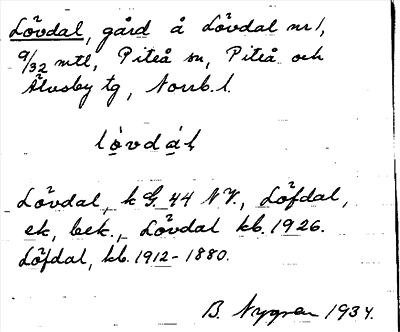 Lövdal, gård å Lövdal nr 1,
9/32 mtl, Piteå sn, Piteå och
Älvsby tg, Norrb. l.
Lövdal, k G. 44 NV., Löfdal,
ek, bek., Lövdal kb. 1926.
Löfdal, kb. 1912-1880.
B. Nygren 1934.